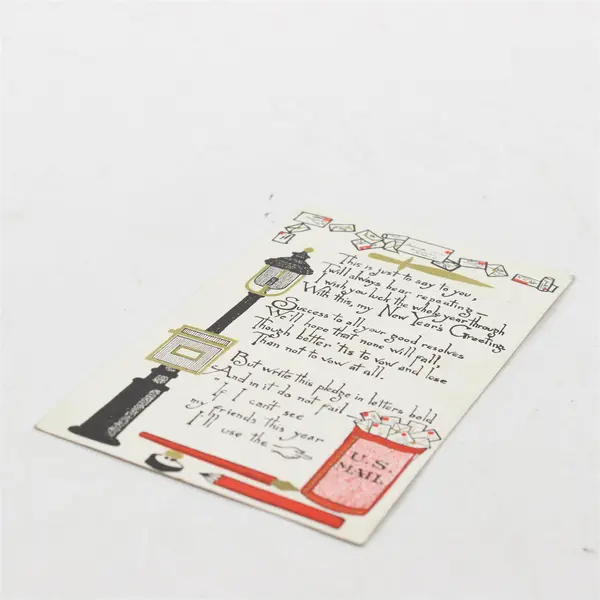 This is just to say to you,
I will always bear repeating,
I wish you luck the whole year through
With this, my New Year's Greeting
Success to all your good resolves
We'll hope that none will fall,
Though better 'tis to vow and lose
Than not to vow at all.
But write this pledge in letters bold
And in it do not fail
"If I can't see
my friends this year
I'll use the
U.S.
MAIL